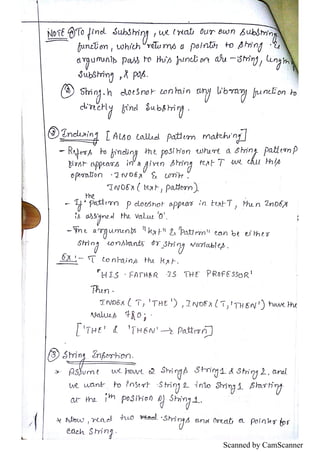 NOTE ① To find Substring, we creat our own Substring
function, which returns a pointer to string. &
arguments pass to this function are – string, length
Substring, & pos.
② String.h doesnot contain any library function to
directly find Substring.
② Indexing [Also called pattern matching]
- Refers to finding the position where a string pattern P
first appears in a given string text T. we call this
operation INDEX & write.
INDEX (text, pattern)
the
- If pattern P doesnot appear in text T, then INDEX
is assigned the value '0'.
- The arguments "text" & "pattern" can be either
string constants or string variables.
Ex:- T contains the text.
'HIS FATHER IS THE PROFESSOR'
Then,
INDEX (T, 'THE'), INDEX (T, 'THEN') have the
values 7 & 0;
['THE' & 'THEN' → Pattern]
③ String Insertion.
→ Assume we have 2 Strings String1 & String2, and
we want to insert String2 into String1 starting
at the ith position of String1.
* Now, read two strings and creats a pointer for
each String.
Scanned by CamScanner